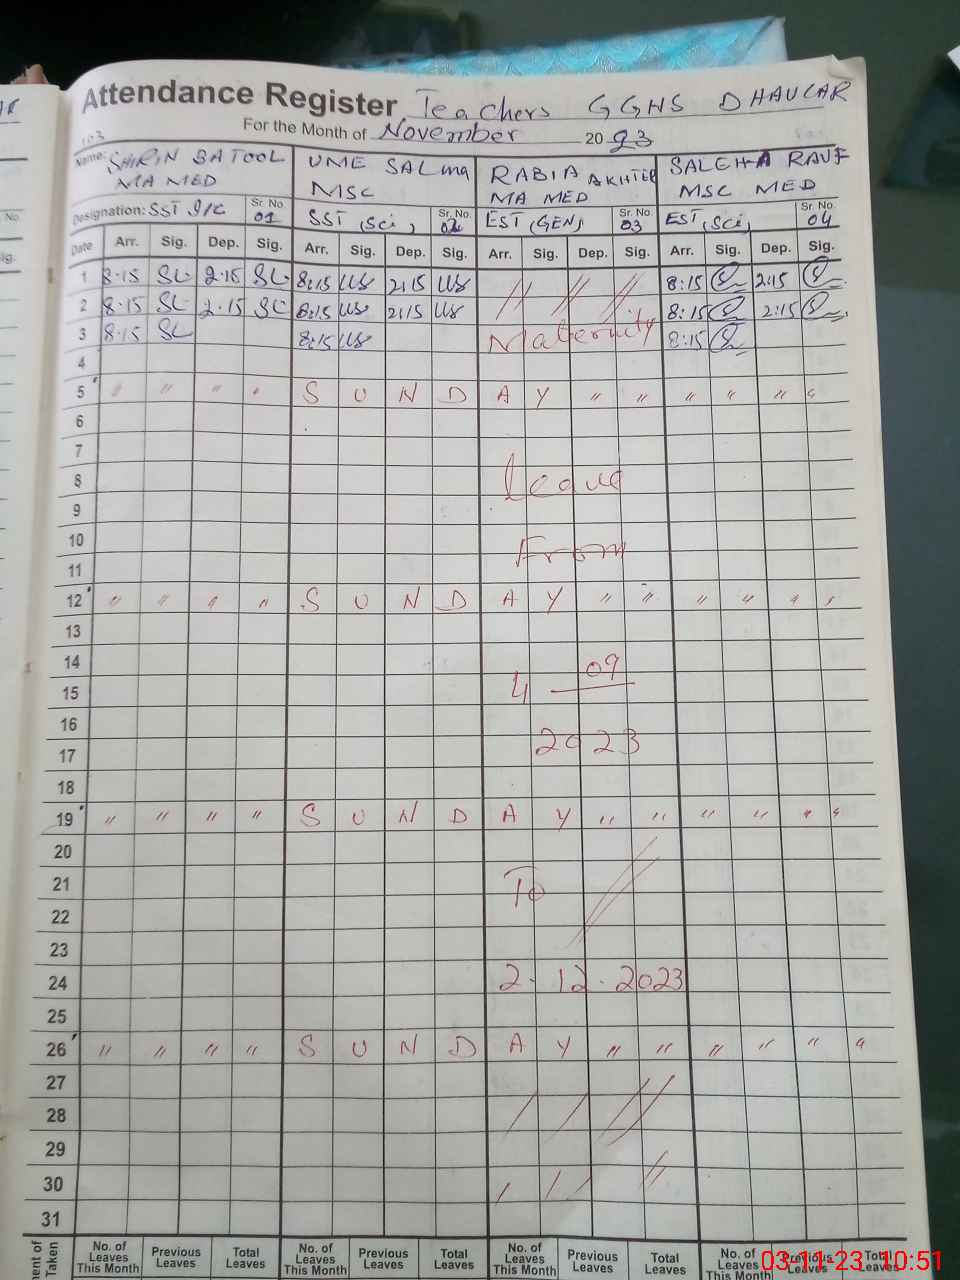 Attendance Register Teachers GGHS DHAULAR
For the Month of November 2023
Name: SHIRIN BATOOL UME SALma RABIA AKHTER SALEHA RAUF
MA MED MSC MA MED MSC MED
Designation: SST I/C Sr. No. 01 SST (Sci) Sr. No. 02 EST (GEN) Sr. No. 03 EST (Sci) Sr. No. 04
Date Arr. Sig. Dep. Sig. Arr. Sig. Dep. Sig. Arr. Sig. Dep. Sig. Arr. Sig. Dep. Sig.
1 8·15 2·15 8:15 US 2:15 US // // // 8:15 2:15
2 8·15 2·15 8:15 US 2:15 US // // // 8:15 2:15
3 8·15 8:15 US Maternity 8:15
4
5 " " " " S U N D A Y " " " " " "
6
7
8 Leave
9
10 From
11
12 " " " " S U N D A Y " " " " " "
13
14 09
15 4
16
17 2023
18
19 " " " " S U N D A Y " " " " " "
20
21 To
22
23
24 2·12·2023
25
26 " " " " S U N D A Y " " " " " "
27
28
29
30
31
No. of Leaves This Month Previous Leaves Total Leaves No. of Leaves This Month Previous Leaves Total Leaves No. of Leaves This Month Previous Leaves Total Leaves No. of Leaves This Month Previous Leaves Total Leaves
ment of Taken
03-11-23 10:51